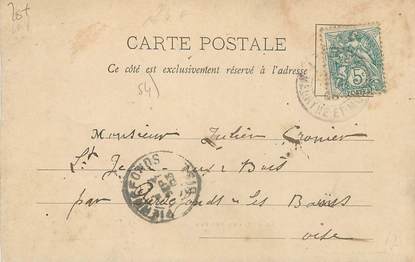 CARTE POSTALE
Ce côté est exclusivement réservé à l'adresse
54)
5c
Monsieur Julien Cronier
St Jean aux Bois
par Pierrefonds-les Bains
oise